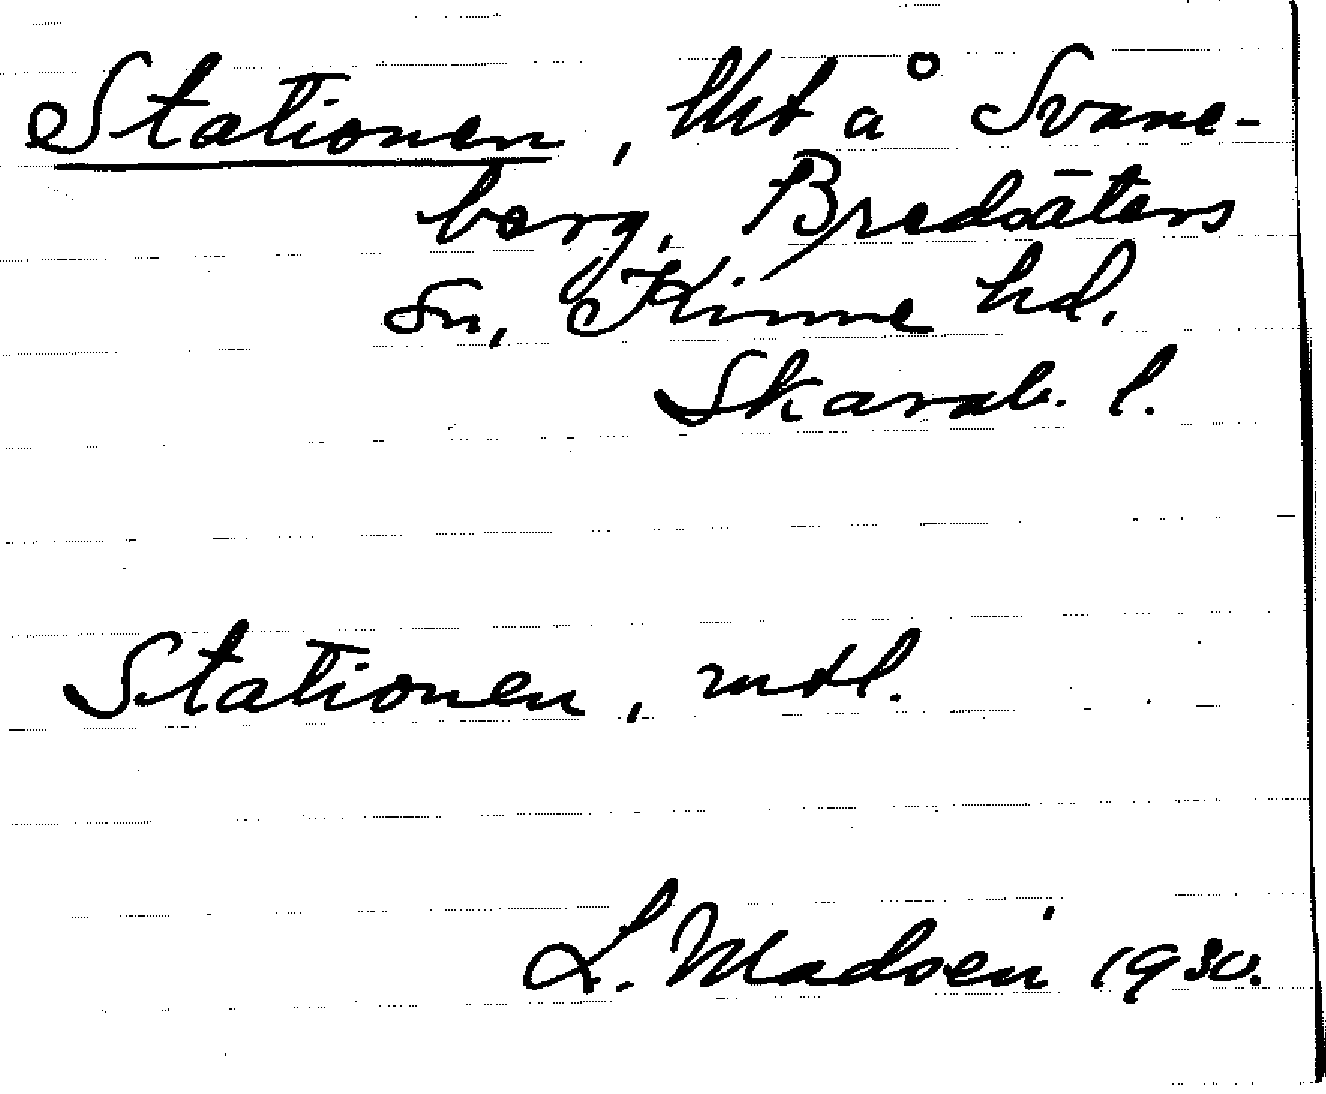 Stationen, lht å Svane-
berg, Bredsäters
sn, Kinne hd,
Skarab. l.
Stationen, mtl.
L. Madsen 1930.